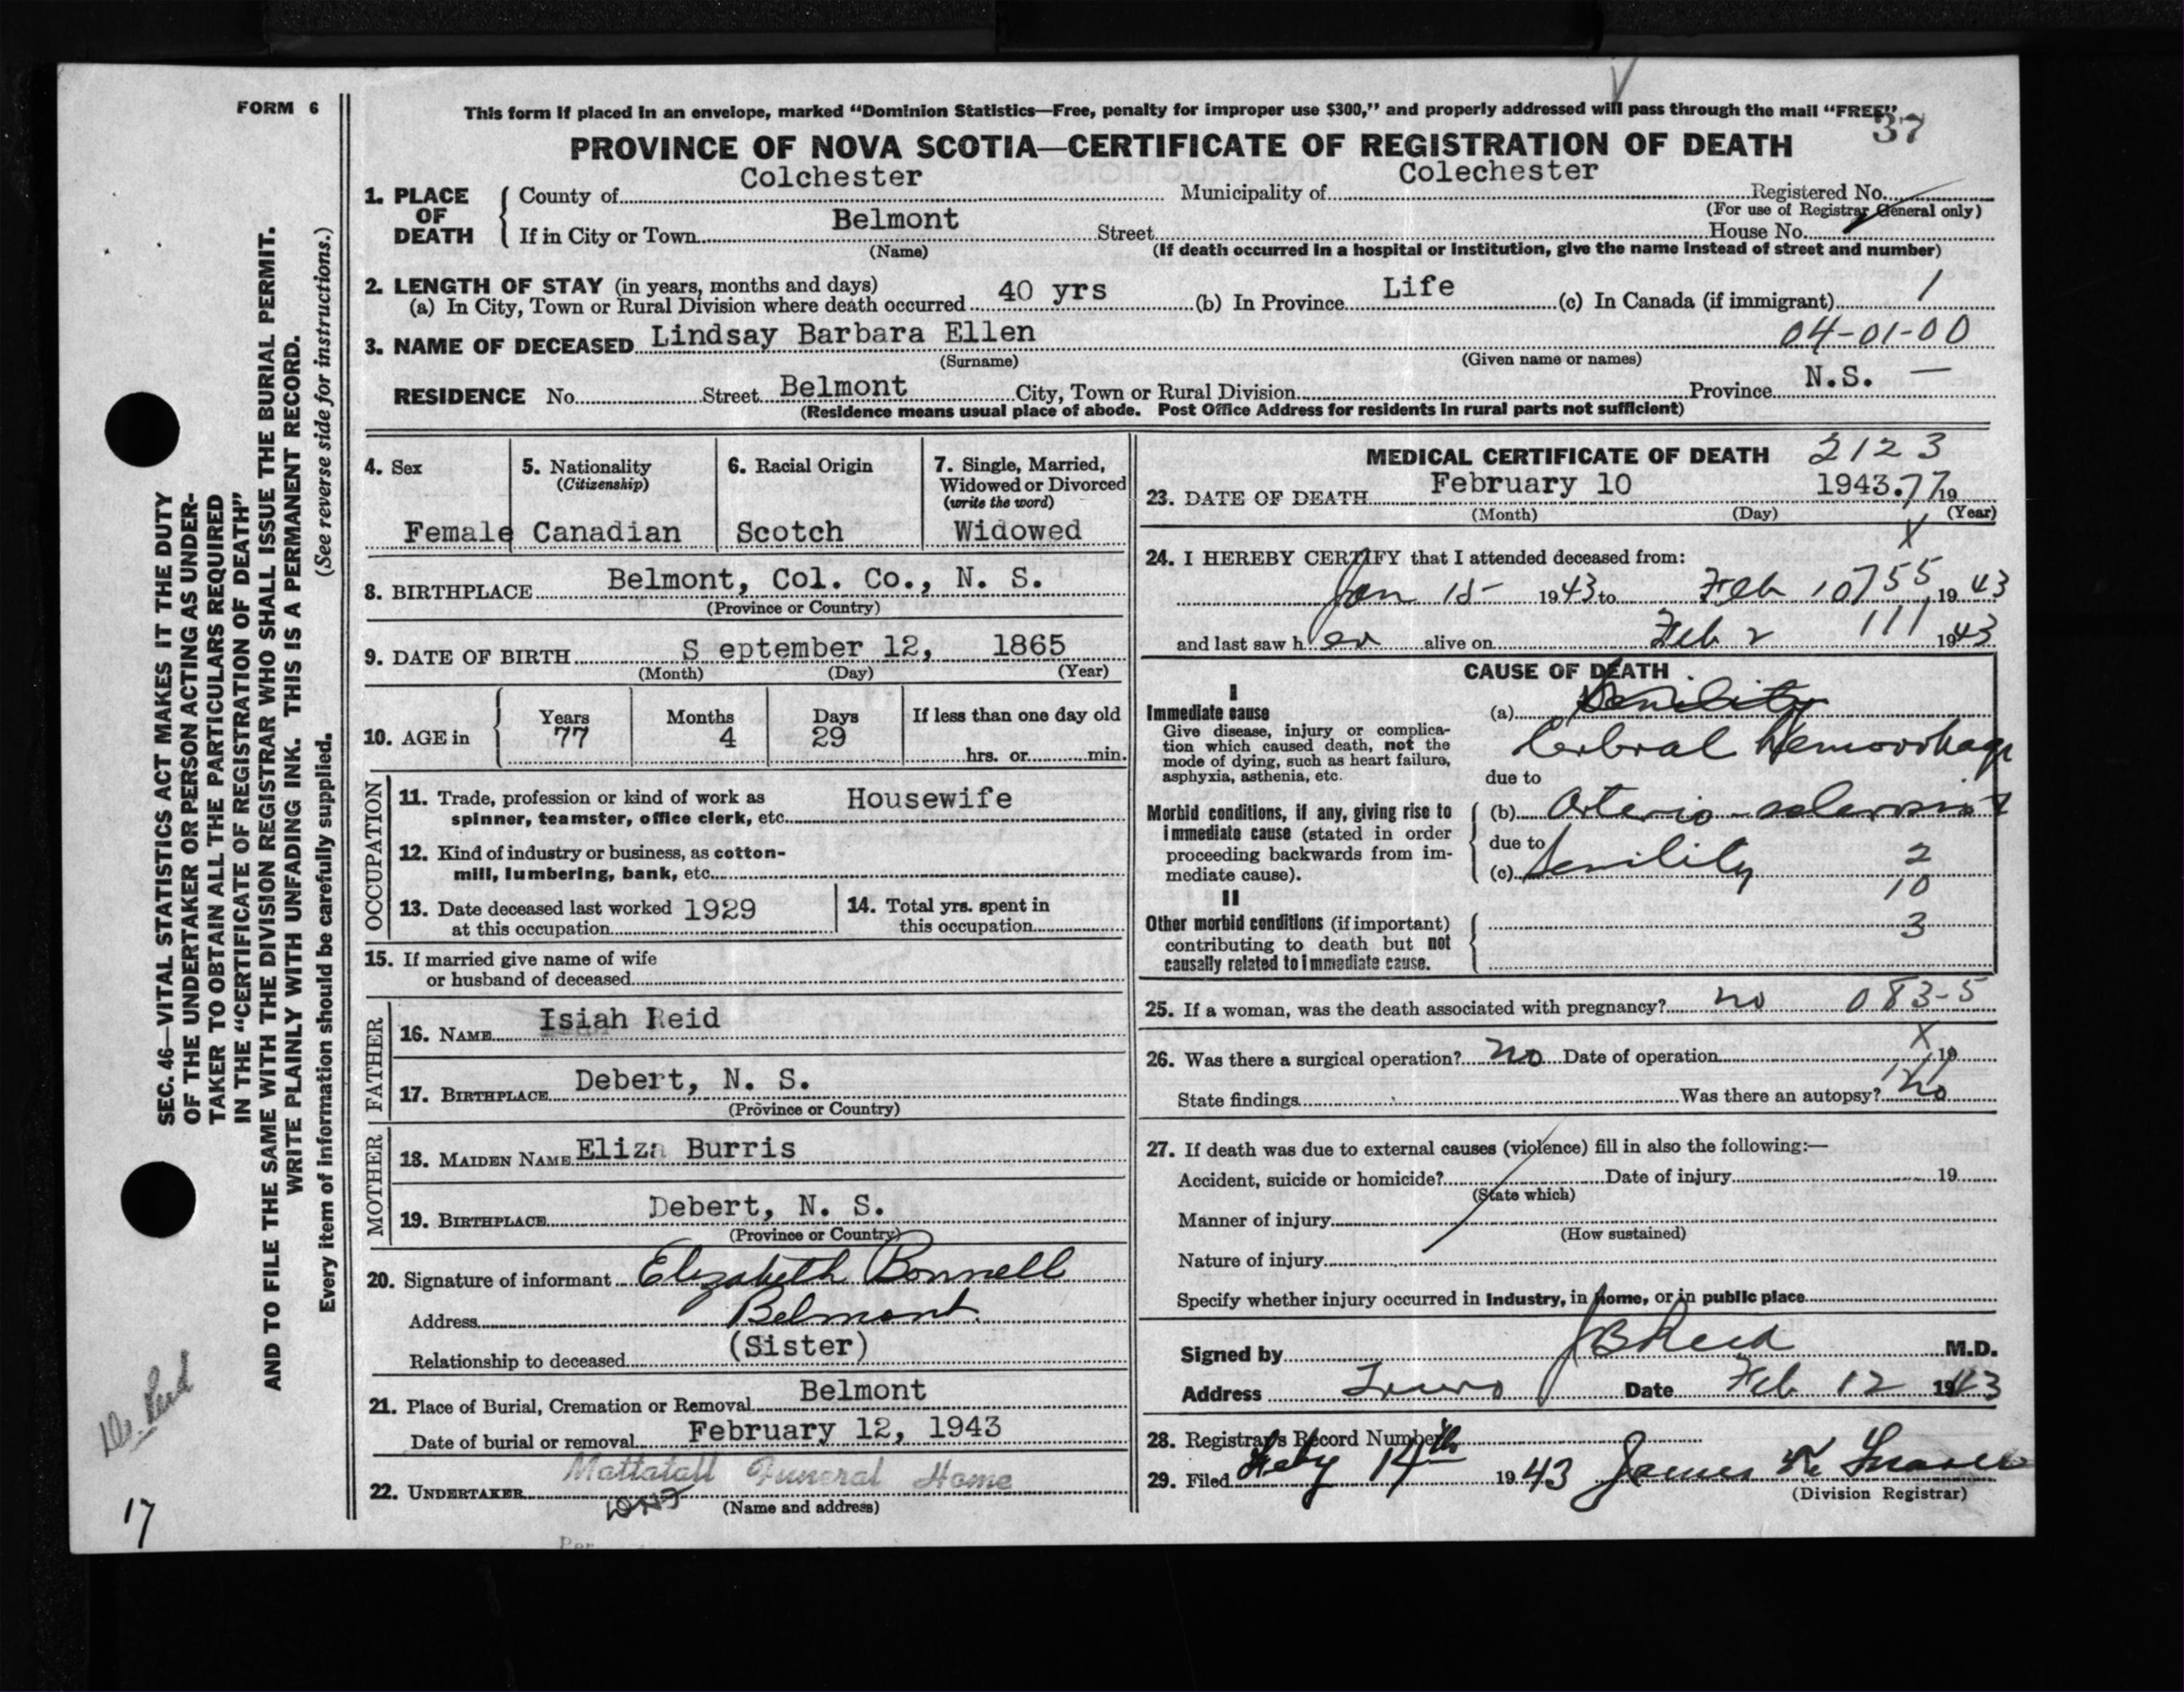 FORM 6
This form if placed in an envelope, marked “Dominion Statistics—Free, penalty for improper use $300,” and properly addressed will pass through the mail “FREE”.
37
PROVINCE OF NOVA SCOTIA—CERTIFICATE OF REGISTRATION OF DEATH
1. PLACE OF DEATH
County of Colchester Municipality of Colechester Registered No.
(For use of Registrar General only)
If in City or Town Belmont Street House No.
(Name) (If death occurred in a hospital or institution, give the name instead of street and number)
2. LENGTH OF STAY (in years, months and days)
(a) In City, Town or Rural Division where death occurred 40 yrs (b) In Province Life (c) In Canada (if immigrant) /
3. NAME OF DECEASED Lindsay Barbara Ellen 04-01-00
(Surname) (Given name or names)
RESIDENCE No. Street Belmont City, Town or Rural Division Province N.S. —
(Residence means usual place of abode. Post Office Address for residents in rural parts not sufficient)
4. Sex
Female
5. Nationality
(Citizenship)
Canadian
6. Racial Origin
Scotch
7. Single, Married, Widowed or Divorced
(write the word)
Widowed
8. BIRTHPLACE Belmont, Col. Co., N. S.
(Province or Country)
9. DATE OF BIRTH S eptember 12, 1865
(Month) (Day) (Year)
10. AGE in
Years Months Days If less than one day old
77 4 29
hrs. or min.
OCCUPATION
11. Trade, profession or kind of work as Housewife
spinner, teamster, office clerk, etc.
12. Kind of industry or business, as cotton-
mill, lumbering, bank, etc.
13. Date deceased last worked 1929
at this occupation
14. Total yrs. spent in
this occupation
15. If married give name of wife
or husband of deceased
FATHER
16. NAME Isiah Reid
17. BIRTHPLACE Debert, N. S.
(Province or Country)
MOTHER
18. MAIDEN NAME Eliza Burris
19. BIRTHPLACE Debert, N. S.
(Province or Country)
20. Signature of informant Elizabeth Bonnell
Address Belmont.
Relationship to deceased (Sister)
21. Place of Burial, Cremation or Removal Belmont
Date of burial or removal February 12, 1943
22. UNDERTAKER Mattatall Funeral Home
(Name and address)
Per
MEDICAL CERTIFICATE OF DEATH 2123
23. DATE OF DEATH February 10 1943. 77 19
(Month) (Day) (Year)
X
24. I HEREBY CERTIFY that I attended deceased from:
Jan 15 1943 to Feb 10 755 1943
and last saw her alive on Feb 2 111 1943
CAUSE OF DEATH
I
Immediate cause
Give disease, injury or complica-
tion which caused death, not the
mode of dying, such as heart failure,
asphyxia, asthenia, etc.
(a) Senility
Cerbral Hemorrhage
due to
Morbid conditions, if any, giving rise to
immediate cause (stated in order
proceeding backwards from im-
mediate cause).
(b) Arterio-sclerosis
due to
(c) Senility 2
10
II
Other morbid conditions (if important)
contributing to death but not
causally related to immediate cause.
3
25. If a woman, was the death associated with pregnancy? no 083-5
X
26. Was there a surgical operation? no Date of operation 19
State findings Was there an autopsy? no
27. If death was due to external causes (violence) fill in also the following:—
Accident, suicide or homicide? Date of injury 19
(State which)
Manner of injury
(How sustained)
Nature of injury
Specify whether injury occurred in Industry, in home, or in public place
Signed by JB Reid M.D.
Address Truro Date Feb 12 1943
28. Registrar's Record Number
29. Filed Feby 14th 1943 James
(Division Registrar)
SEC. 46—VITAL STATISTICS ACT MAKES IT THE DUTY
OF THE UNDERTAKER OR PERSON ACTING AS UNDER-
TAKER TO OBTAIN ALL THE PARTICULARS REQUIRED
IN THE “CERTIFICATE OF REGISTRATION OF DEATH”
AND TO FILE THE SAME WITH THE DIVISION REGISTRAR WHO SHALL ISSUE THE BURIAL PERMIT.
WRITE PLAINLY WITH UNFADING INK. THIS IS A PERMANENT RECORD.
Every item of information should be carefully supplied. (See reverse side for instructions.)
Dr. Reid
17